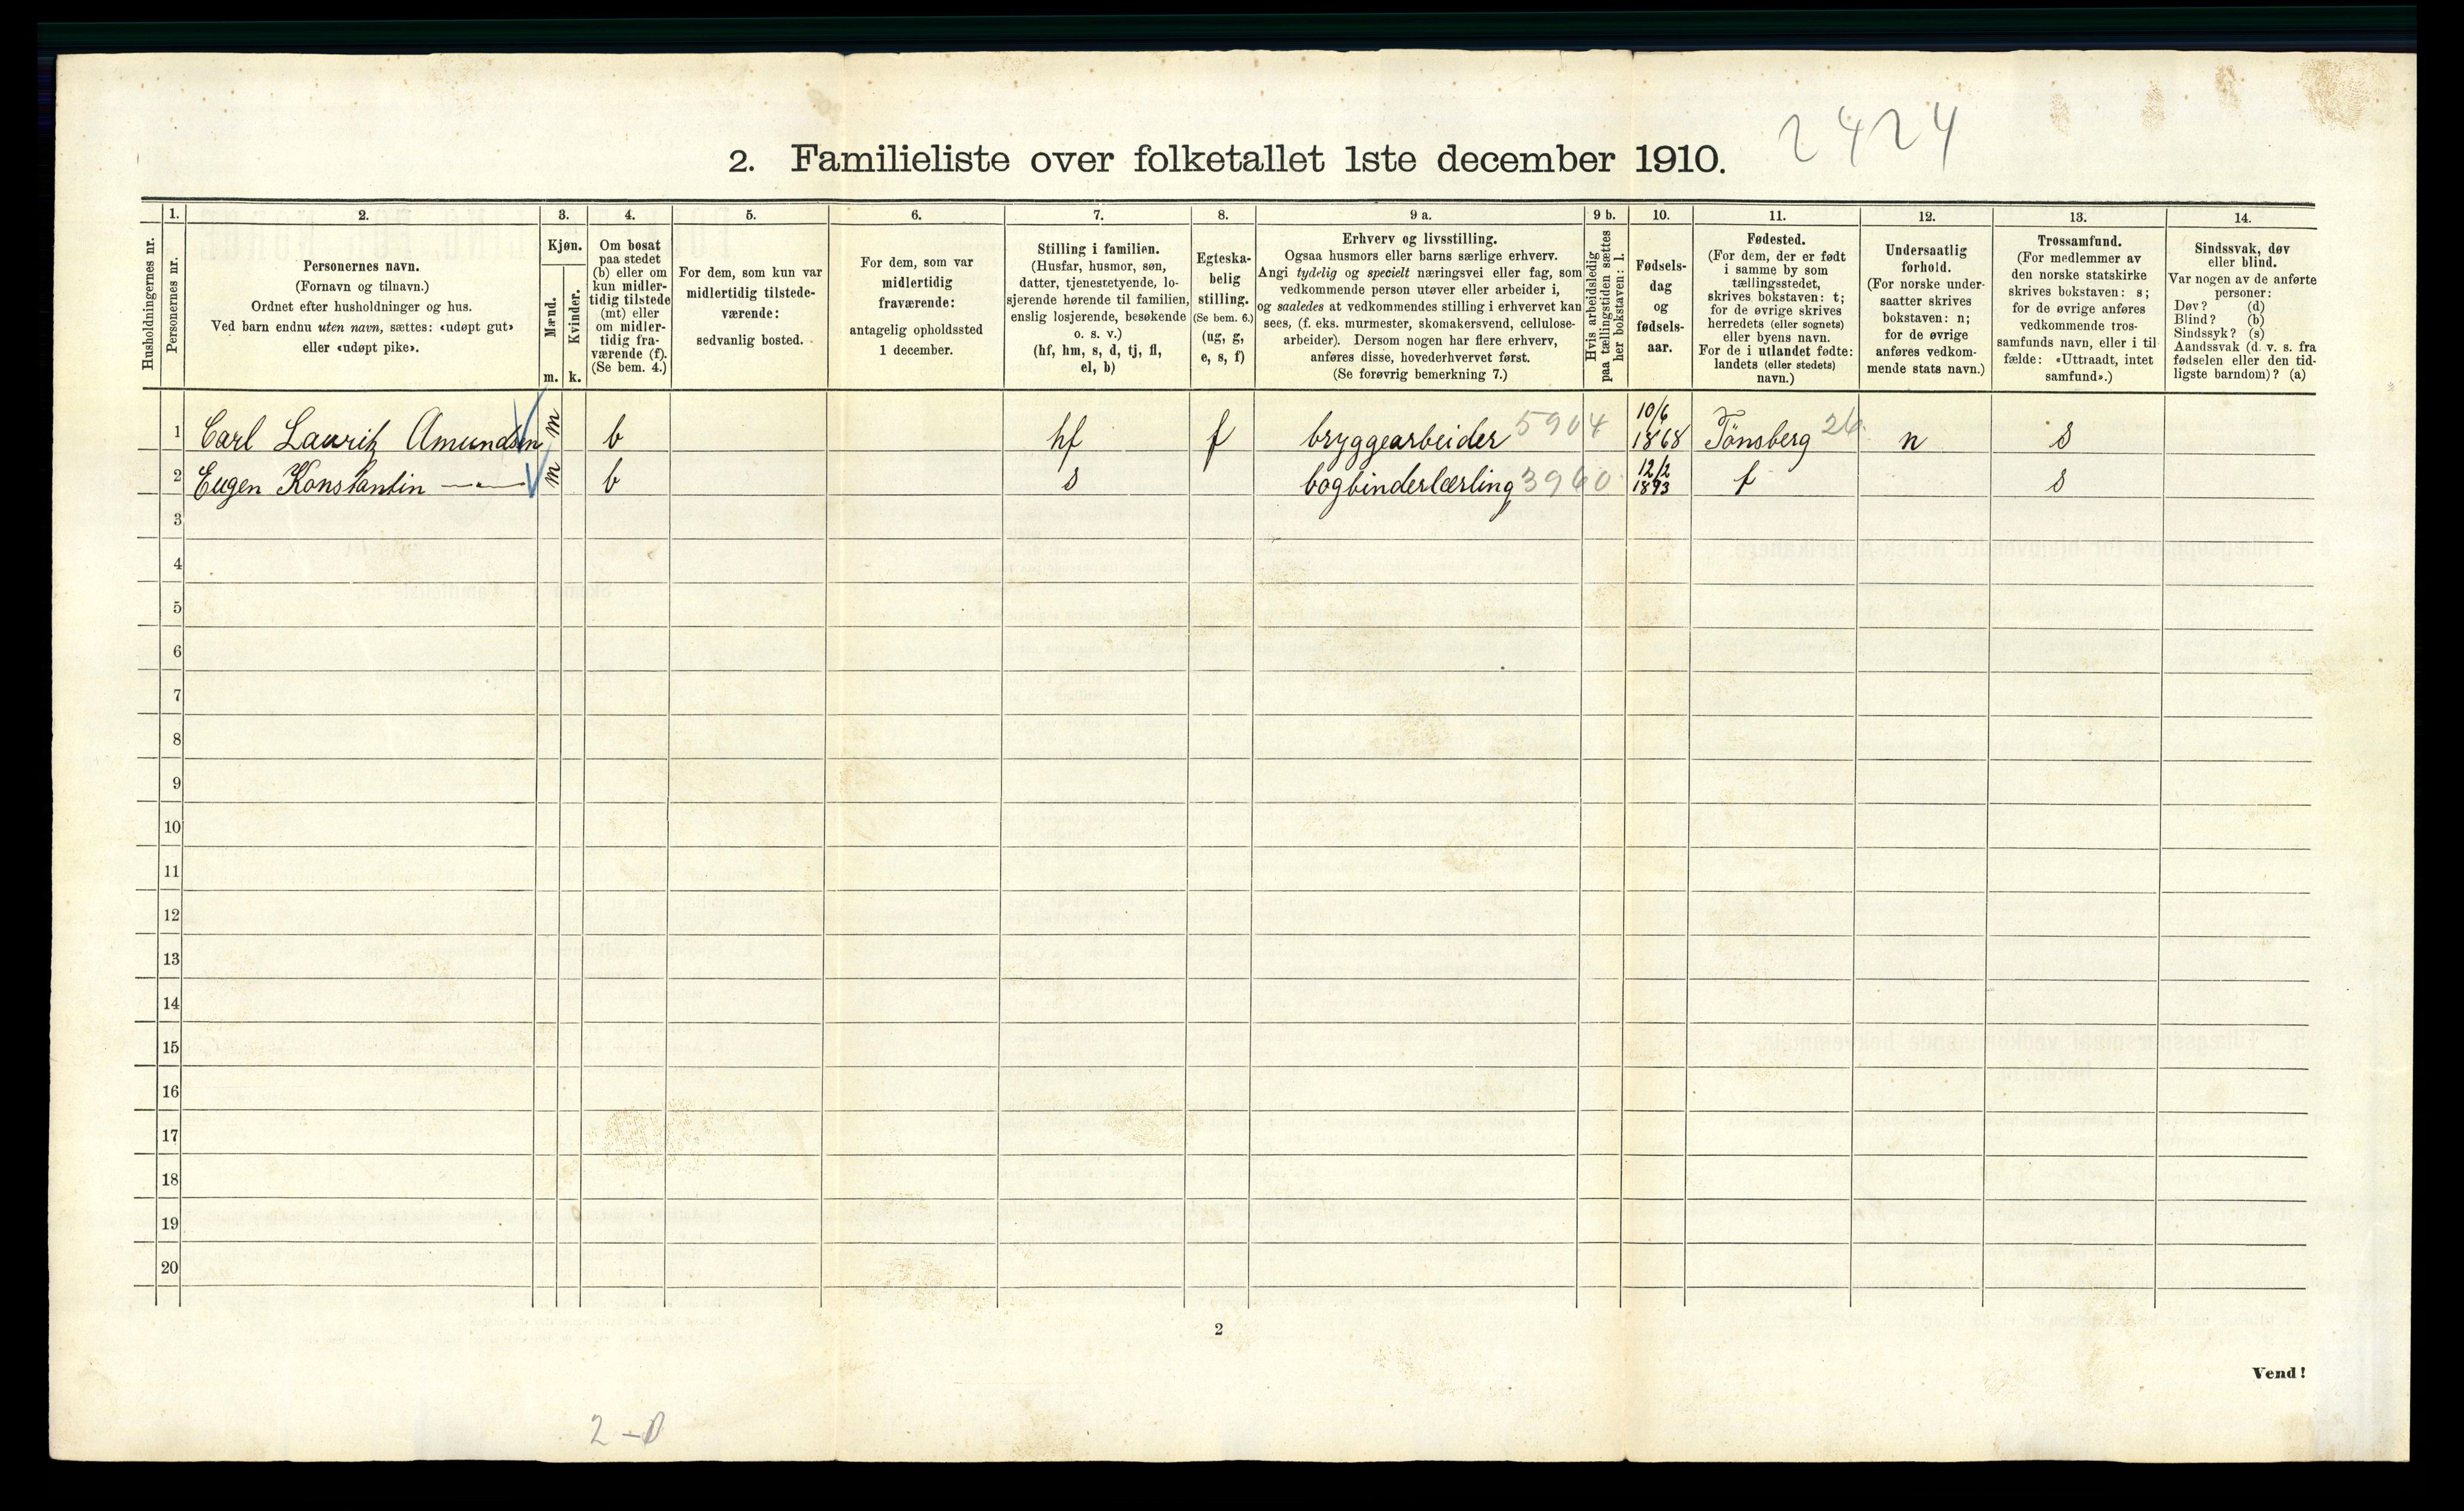 2424
2. Familieliste over folketallet 1ste december 1910.
Husholdningernes nr.
1.
Personernes nr.
2.
Personernes navn.
(Fornavn og tilnavn.)
Ordnet efter husholdninger og hus.
Ved barn endnu uten navn, sættes: «udøpt gut»
eller «udøpt pike».
3.
Kjøn.
Mænd.
Kvinder.
m. k.
4.
Om bosat
paa stedet
(b) eller om
kun midler-
tidig tilstede
(mt) eller
om midler-
tidig fra-
værende (f).
(Se bem. 4.)
5.
For dem, som kun var
midlertidig tilstede-
værende:
sedvanlig bosted.
6.
For dem, som var
midlertidig
fraværende:
antagelig opholdssted
1 december.
7.
Stilling i familien.
(Husfar, husmor, søn,
datter, tjenestetyende, lo-
sjerende hørende til familien,
enslig losjerende, besøkende
o. s. v.)
(hf, hm, s, d, tj, fl,
el, b)
8.
Egteska-
belig
stilling.
(Se bem. 6.)
(ug, g,
e, s, f)
9 a.
Erhverv og livsstilling.
Ogsaa husmors eller barns særlige erhverv.
Angi tydelig og specielt næringsvei eller fag, som
vedkommende person utøver eller arbeider i,
og saaledes at vedkommendes stilling i erhvervet kan
sees, (f. eks. murmester, skomakersvend, cellulose-
arbeider). Dersom nogen har flere erhverv,
anføres disse, hovederhvervet først.
(Se forøvrig bemerkning 7.)
9 b.
Hvis arbeidsledig
paa tællingstiden sættes
her bokstaven: l.
10.
Fødsels-
dag
og
fødsels-
aar.
11.
Fødested.
(For dem, der er født
i samme by som
tællingsstedet,
skrives bokstaven: t;
for de øvrige skrives
herredets (eller sognets)
eller byens navn.
For de i utlandet fødte:
landets (eller stedets)
navn.)
12.
Undersaatlig
forhold.
(For norske under-
saatter skrives
bokstaven: n;
for de øvrige
anføres vedkom-
mende stats navn.)
13.
Trossamfund.
(For medlemmer av
den norske statskirke
skrives bokstaven: s;
for de øvrige anføres
vedkommende tros-
samfunds navn, eller i til-
fælde: «Uttraadt, intet
samfund».)
14.
Sindssvak, døv
eller blind.
Var nogen av de anførte
personer:
Døv? (d)
Blind? (b)
Sindssyk? (s)
Aandssvak (d. v. s. fra
fødselen eller den tid-
ligste barndom)? (a)
1 Carl Lauritz Amundsen m b hf f bryggearbeider 5904 10/6 1868 Tönsberg 26 n s
2 Eugen Konstantin —"— m b s bogbinderlærling 3960 12/2 1893 t s
3
4
5
6
7
8
9
10
11
12
13
14
15
16
17
18
19
20
2
Vend!
2-0